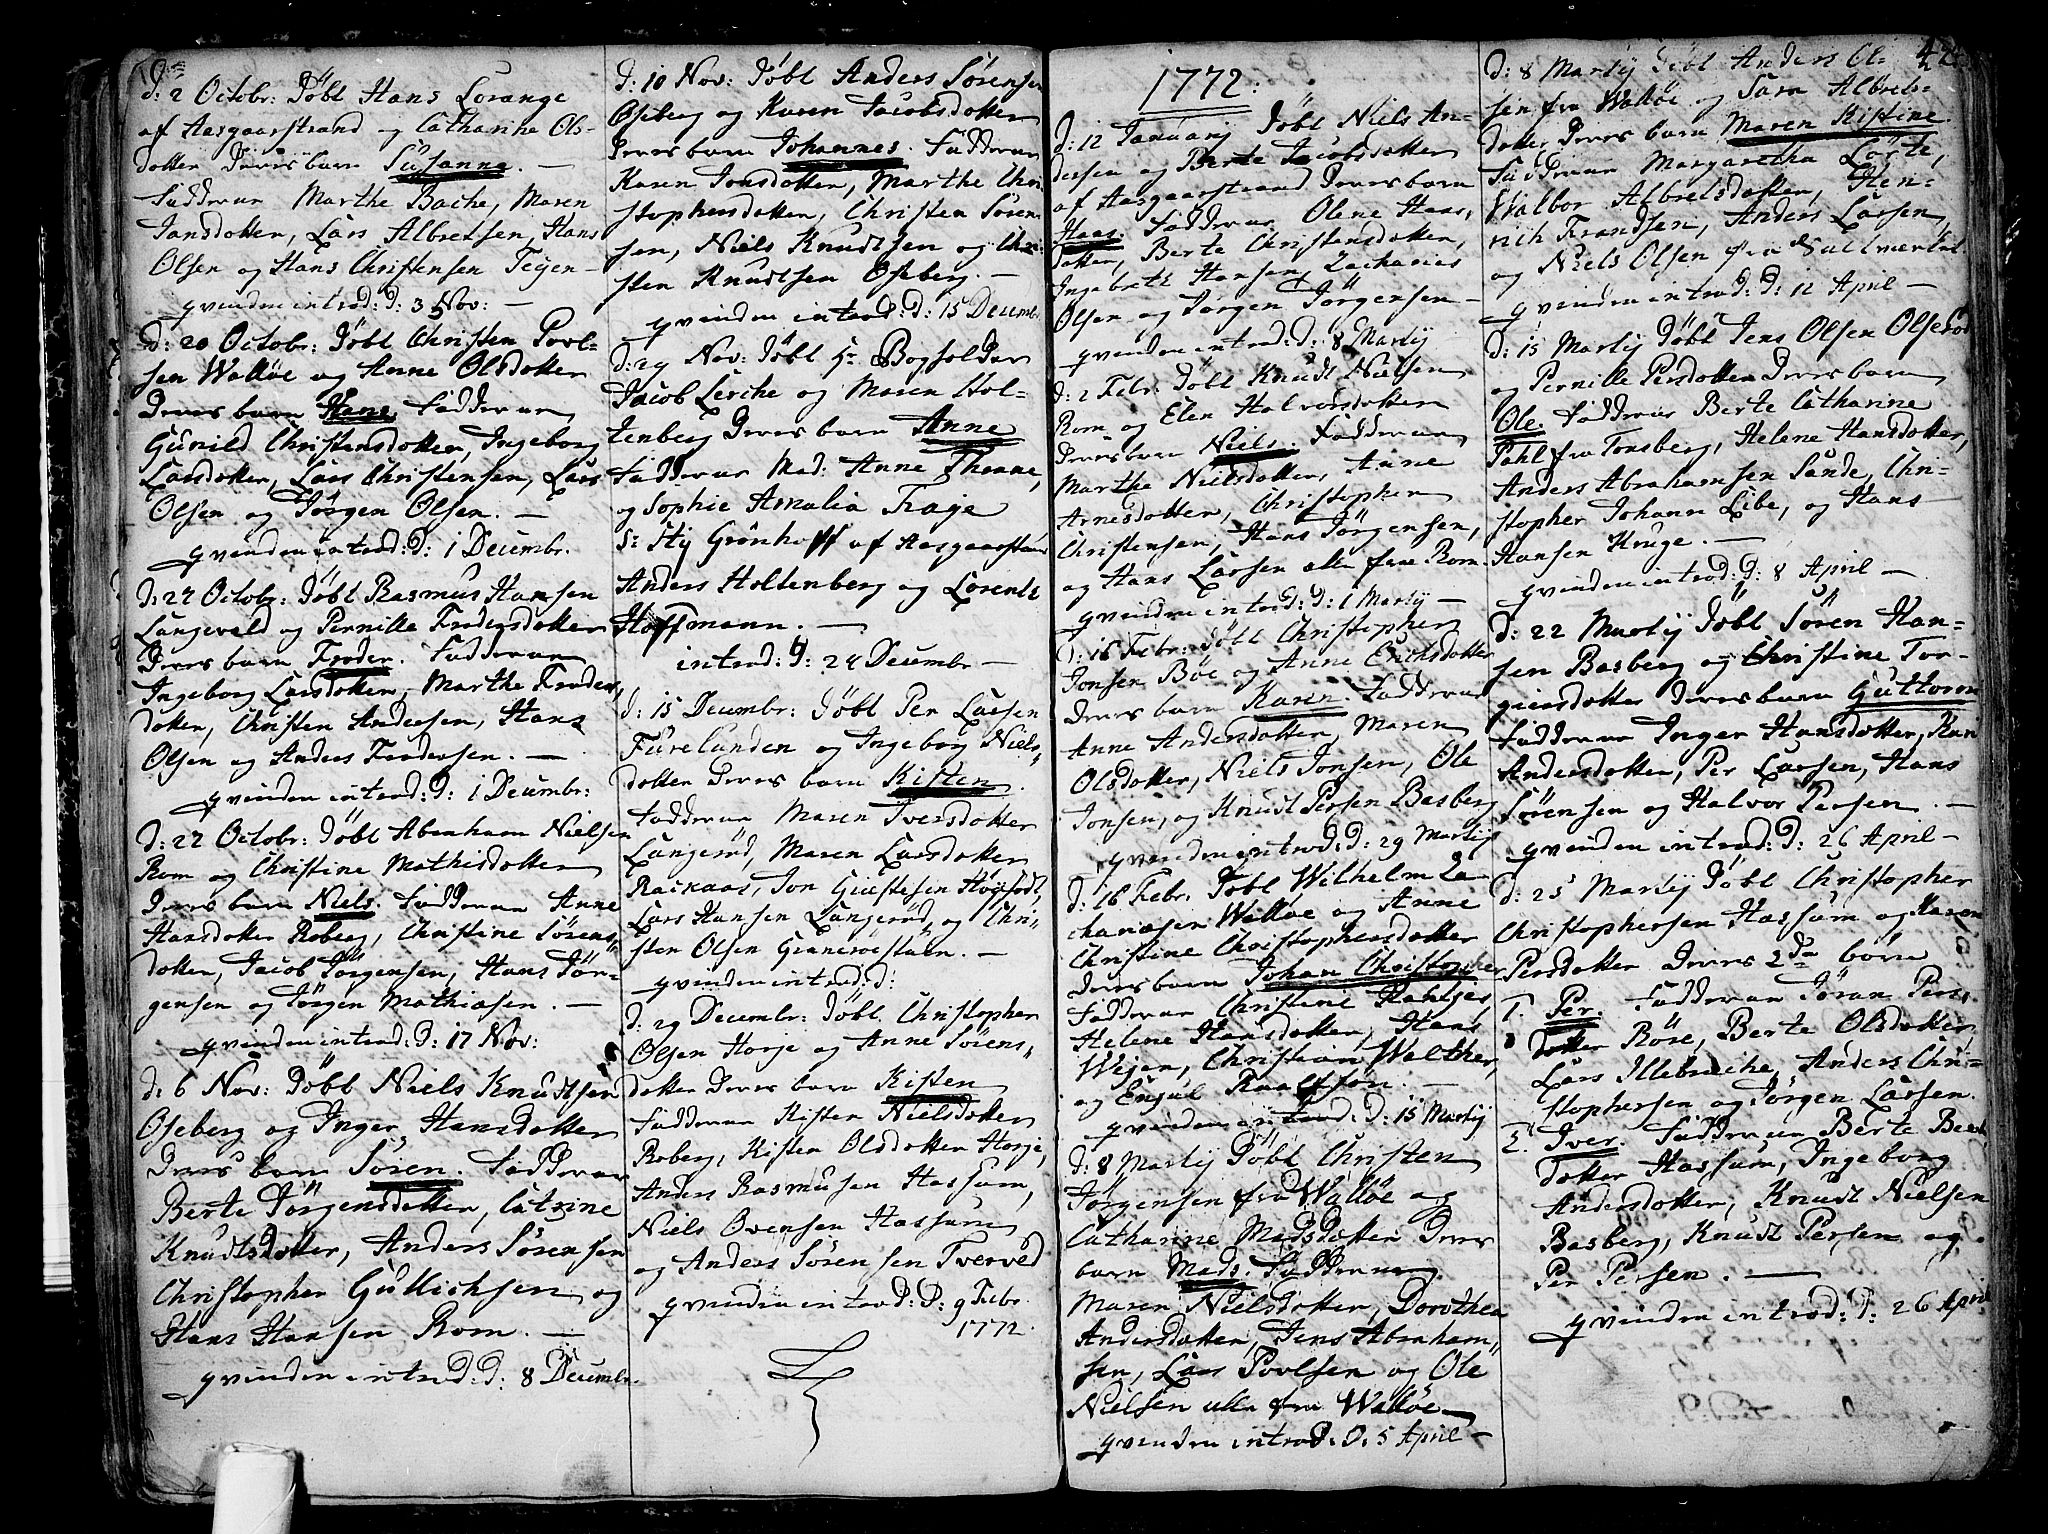 d: 2 Octobr: Döbt Hans Lorange
af Aasgaarstrand og Catharine Ols-
dotter Deres barn Susanna. —
Fadderne Marthe Bache, Maren
Jansdotter, Lars Albretsen, Hans
Olsen og Hans Christensen Teyen —
qvinden introd: d: 3 Nov: —
d: 20 Octobr: Döbt Christen Povl-
sen Walløe og Anne Olsdotter
Deres barn Hans. Fadderne
Gunild Christensdotter, Ingeborg
Larsdotter, Lars Christensen, Lars
Olsen og Jörgen Olsen. —
qvinden introd: d: 1 Decembr.
d: 27 Octobr: Döbt Rasmus Hansen
Langevald og Pernille Frodersdotter
Deres barn Froder. Fadderne
Ingeborg Larsdotter, Marthe Froders
dotter, Christen Andersen, Hans
Olsen og Anders Frodersen. —
qvinden introd: d: 1 Decembr:
d: 27 Octobr: Döbt Abraham Nielsen
Rom og Christine Mathisdotter
Deres barn Niels. Fadderne Anne
Hansdotter Roberg, Christine Sörens-
dotter, Jacob Jörgensen, Hans Jör-
gensen og Jörgen Mathiasen. —
qvinden introd: d: 17 Nov:
d: 6 Nov: Döbt Niels Knudtsen
Oseberg og Inger Hansdotter
Deres barn Sören. Fadderne
Berte Jörgensdotter, Catrine
Knudtsdotter, Anders Sörensen
Christopher Gullichsen og
Hans Hansen Rom. —
qvinden introd: d: 8 Decembr.
d: 10 Nov: Döbt Anders Sörensen
Oseberg og Karen Jacobsdotter
Deres barn Johannes. Fadderne
Karen Jonsdotter, Marthe Chri-
stophersdotter, Christen Sören-
sen, Niels Knudtsen og Chri-
sten Knudtsen Oseberg. —
qvinden introd: d: 15 Decembr
d: 29 Nov: Döbt Hr Bogholder
Jacob Lerche og Maren Hol-
tenberg Deres barn Anne
Fadderne Mad: Anne Thenne,
og Sophie Amalia Traye
Sr Sty Grönhoff af Aasgaarstrand
Anders Holtenberg og Lorentz
Hoffmann. —
introd: d: 24 Decembr —
d: 15 Decembr: Döbt Per Larsen
Furelunden og Ingeborg Niels-
dotter Deres barn Kisten.
Fadderne Maren Iversdotter
Langeröd, Maren Larsdotter
Rackaas, Jon Giestesen Høysødt,
Lars Hansen Langeröd, og Chri-
sten Olsen Graneröestuen. —
qvinden introd: d:
d: 29 Decembr: Döbt Christopher
Olsen Horje og Anne Sörens-
dotter Deres barn Kisten
Fadderne Kisten Nielsdotter
Roberg, Kisten Olsdotter Horje,
Anders Rasmusen Hassum,
Niels Ovensen Hassum
og Anders Sörensen Tverved
qvinden introd: d: 9 Febr.
1772.
42
1772:
d: 12 Januarij Döbt Niels An-
dersen og Berte Jacobsdotter
af Aasgaarstrand Deres barn
Haas. Fadderne Olene Haas-
dotter, Berte Christensdotter,
Ingebret Hansen, Zacharias
Olsen og Jörgen Jörgensen —
qvinden introd: d: 8 Martij
d: 2 Febr: Döbt Knudt Nielsen
Rom og Elen Halvorsdotter
Deres barn Niels. Fadderne
Marthe Nielsdotter, Anne
Arnesdotter, Christopher
Christensen, Hans Jörgensen,
og Hans Larsen alle fra Rom.
qvinden introd: d: 1 Martij —
d: 16 Febr: Döbt Christopher
Jonsen Böe og Anne Erichsdotter
Deres barn Karen. Fadderne
Anne Andersdotter, Maren
Olsdotter, Niels Jonsen, Ole
Jonsen, og Knudt Persen Basberg
qvinden introd: d: 29 Martij
d: 16 Febr. Döbt Wilhelm Za-
chariæsen Walløe og Anne
Christine Christophersdotter
Deres barn Johan Christopher
Fadderne Christine
Helene Hansdotter, Hans
Wejer, Christian Walther,
og Engul Raalfson. —
qvinden introd: d: 15 Martij
d: 8 Martij Döbt Christen
Jörgensen fra Walløe og
Catharine Madsdotter Deres
barn Mads. Fadderne
Maren Nielsdotter, Dorothea
Andersdotter, Jens Abraham-
sen, Lars Povlsen og Ole
Nielsen alle fra Walløe —
qvinden introd: d: 5 April —
d: 8 Martij Döbt Anders Ol-
sen fra Walløe og Sara Albrets-
dotter Deres barn Maren Kistine
Fadderne Margaretha Lörte,
Walbor Albretsdotter, Hen-
rich Frandsen, Anders Larsen,
og Niels Olsen fra Saltværket
qvinden introd: d: 12 April —
d: 15 Martij Döbt Jens Olsen
og Pernille Persdotter Deres barn
Ole. Fadderne Berte Catharine
Pahl fra Tonsberg, Helene Hansdotter,
Anders Abrahamsen Sande, Chri-
stopher Johann Libe, og Hans
Hansen Kruge. —
qvinden introd: d: 8 April —
d: 22 Martij Döbt Sören Han-
sen Basberg og Christine Tor-
giersdotter Deres barn Guttorm
Fadderne Inger Hansdotter, Kari
Andersdotter, Per Larsen, Hans
Sörensen og Halvor Persen. —
qvinden introd: d: 26 April —
d: 25 Martij Döbt Christopher
Christophersen Hassum og Karen
Persdotter Deres 2de börn
1. Per. Fadderne Jöran Pers-
dotter Röse, Berte Olsdotter
Lars Illebrache, Anders Chri-
stophersen og Jörgen Larsen.
2. Iver. Fadderne Berte Bent-
dotter Hassum, Ingeborg
Andersdotter, Knudt Nielsen
Basberg, Knudt Persen og
Per Persen. —
qvinden introd: d: 26 April